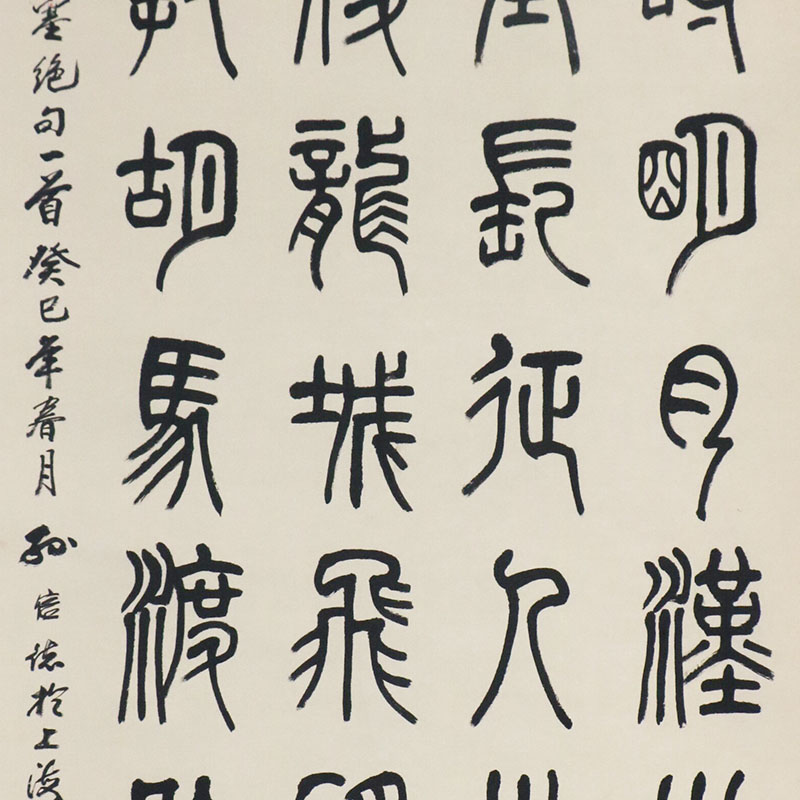 明月漢
長征人
龍城飛
胡馬渡
塞絶句一首癸巳年春月孙信德於上海